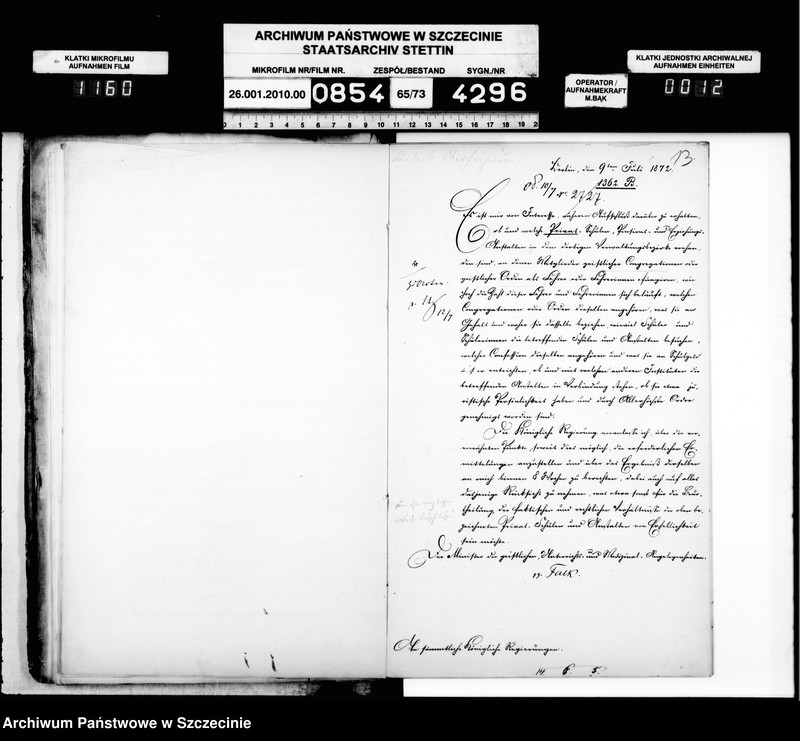 ARCHIWUM PAŃSTWOWE W SZCZECINIE
STAATSARCHIV STETTIN
MIKROFILM NR/FILM NR. ZESPÓŁ/BESTAND SYGN./NR
26.001.2010.00 0854 65/73 4296
0 1 2 3 4 5 6 7 8 9 10 11 12 13 14 15 16 17 18 19 20
KLATKI MIKROFILMU
AUFNAHMEN FILM
1160
OPERATOR /
AUFNAHMEKRAFT
M.BĄK
KLATKI JEDNOSTKI ARCHIWALNEJ
AUFNAHMEN EINHEITEN
0012
13
Berlin, den 9ten Juli 1872.
1362 B.
10/7 No. 2727.
Es ist mir von Interesse, näheren Aufschluß darüber zu erhalten,
ob und welche Privat-Schulen, Pensions- und Erziehungs-
Anstalten in dem dortigen Verwaltungsbezirk vorhan-
den sind, an denen Mitglieder geistlicher Congregationen oder
geistlicher Orden als Lehrer oder Lehrerinnen fungieren, wie
hoch die Zahl dieser Lehrer und Lehrerinnen sich beläuft, welchen
Congregationen oder Orden dieselben angehören, was sie an
Gehalt und woher sie dasselbe beziehen, wieviel Schüler und
Schülerinnen die betreffenden Schulen und Anstalten besuchen,
welcher Confession dieselben angehören und was sie an Schulgeld
entrichten, ob und mit welchen anderen Instituten die
betreffenden Anstalten in Verbindung stehen, ob sie etwa ju-
ristische Persönlichkeit haben und durch Allerhöchste Ordre
genehmigt worden sind.
Die Königliche Regierung veranlasse ich, über die er-
wähnten Punkte, soweit dies möglich, die erforderlichen Er-
mittelungen anzustellen und über das Ergebniß derselben
an mich binnen 8 Wochen zu berichten, dabei auch auf alles
dasjenige Rücksicht zu nehmen, was etwa sonst für die Beur-
theilung der faktischen und rechtlichen Verhältnisse der oben be-
zeichneten Privat-Schulen und Anstalten von Erheblichkeit
sein möchte.
Der Minister der geistlichen, Unterrichts- und Medizinal-Angelegenheiten.
Falk.
12/7
An sämmtliche Königliche Regierungen.
14 6 5.
Archiwum Państwowe w Szczecinie